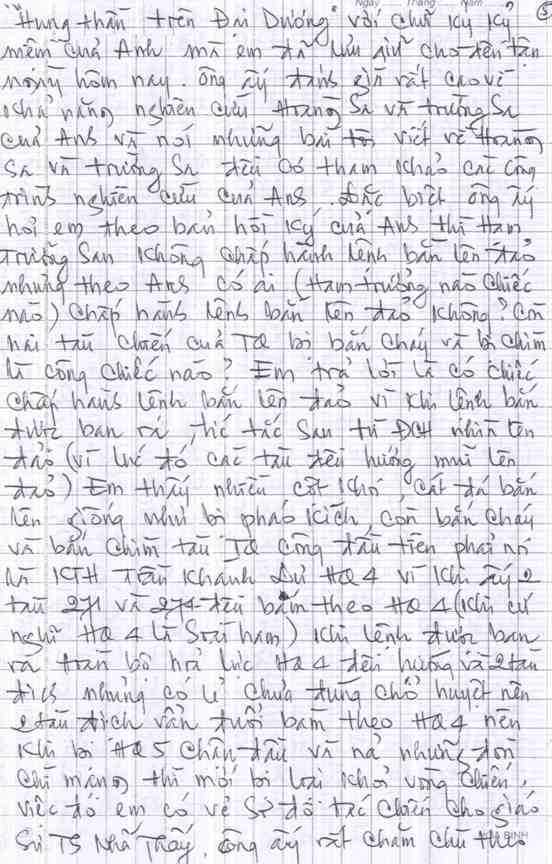 Ngày Tháng Năm
5
"Hung thần trên Đại Dương" với chữ ký kỷ
niệm của Anh mà em đã lưu giữ cho đến tận
ngày hôm nay. Ông ấy đánh giá rất cao về
khả năng nghiên cứu Hoàng Sa và Trường Sa
của Anh và nói những bài viết về Hoàng
Sa và Trường Sa đều có tham khảo các công
trình nghiên cứu của Anh. Đặc biệt ông ấy
hỏi em theo bản hồi ký của Anh thì Hạm
trưởng San không chấp hành lệnh bắn lên đảo
nhưng theo Anh có ai (Hạm trưởng nào chiếc
nào) chấp hành lệnh bắn lên đảo không? Còn
hai tàu chiến của TQ bị bắn cháy và bị chìm
là công chiếc nào? Em trả lời là có chiếc
chấp hành lệnh bắn lên đảo vì khi lệnh bắn
được ban ra, tức tắc sau từ ĐCH nhìn lên
đảo (vì lúc đó các tàu đều hướng mũi lên
đảo) Em thấy nhiều cột khói, cát đá bắn
lên giống như bị pháo kích, còn bắn cháy
và bắn chìm tàu TQ công đầu tiên phải nói
là KTH Trần Khánh Dư HQ4 vì khi ấy 2
tàu 271 và 274 đều bám theo HQ4 (khi cứ
nghĩ HQ4 là Soái hạm) khi lệnh được ban
ra toàn bộ hỏa lực HQ4 đều hướng về 2 tàu
địch nhưng có lẽ chưa đúng chỗ huyệt nên
2 tàu địch vẫn đuổi bám theo HQ4 nên
khi bị HQ5 chặn đầu và nả những đòn
chí mạng thì mới bị loại khỏi vòng chiến,
việc đó em có vẽ Sơ đồ tác chiến cho giáo
sư TS Nhã thấy, ông ấy rất chăm chú theo
HÒA BÌNH